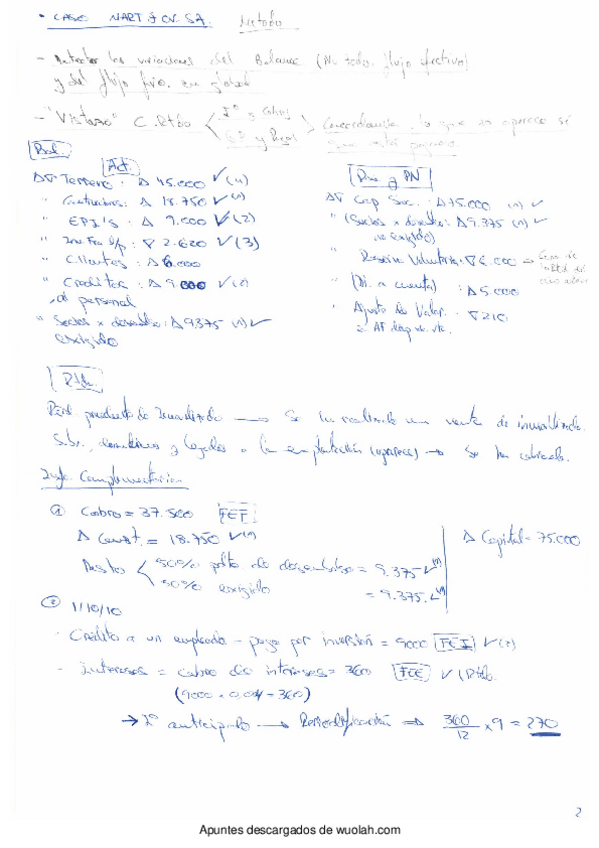 • CASO NART Y CV. S.A. Método
- Detectar las variaciones del Balance (No todo. flujo efectivo)
y del flujo fijo. en global
- "Vistazo" C. Rtdo
Iº y Cobros
GD y Pagos
Concordancia, lo que no aparece sí
que está
Bal.
Act.
Δ∇ Terreno: Δ 45.000 ✓(4)
" Construcciones: Δ 18.750 ✓(1)
" EPI's: Δ 9.000 ✓(2)
" Inv Fra l/p: ∇ 2.620 ✓(3)
" Clientes: Δ 6.000
" Créditos: Δ 9.000 ✓(2)
al personal
" Socios x desemb.: Δ 9375 (1) ✓
exigido
Pas y PN
Δ∇ Cap Soc.: Δ 75.000 (1) ✓
" (Socios x desemb.: Δ 9.375 (1) ✓
no exigido)
" Reserva Voluntaria: ∇ 6.000 →
" (Di. a cuenta): Δ 5.000
" Ajuste de Valor: ∇ 210
AF disp. vta.
Rtdo.
Rtdo. producto de Inmovilizado → Se ha realizado una venta de inmovilizado.
Subv., donativos y legados a la explotación (aparece) → Se ha cobrado.
Info. Complementaria
① Cobro = 37.500 FEF
Δ Const. = 18.750 ✓(1)
Resto
50% pdte de desembolso = 9.375 ✓(1)
50% exigido = 9.375 ✓(1)
Δ Capital = 75.000
② 1/10/10
- Crédito a un empleado - pago por inversión = 9000 FEI ✓(2)
- Intereses = cobro de intereses = 360 FEE ✓ (Rtdo.
(9000 × 0.04 = 360)
→ Iº anticipado → Periodificación ⇒ Δ 360/12 × 9 = 270
2
Apuntes descargados de wuolah.com